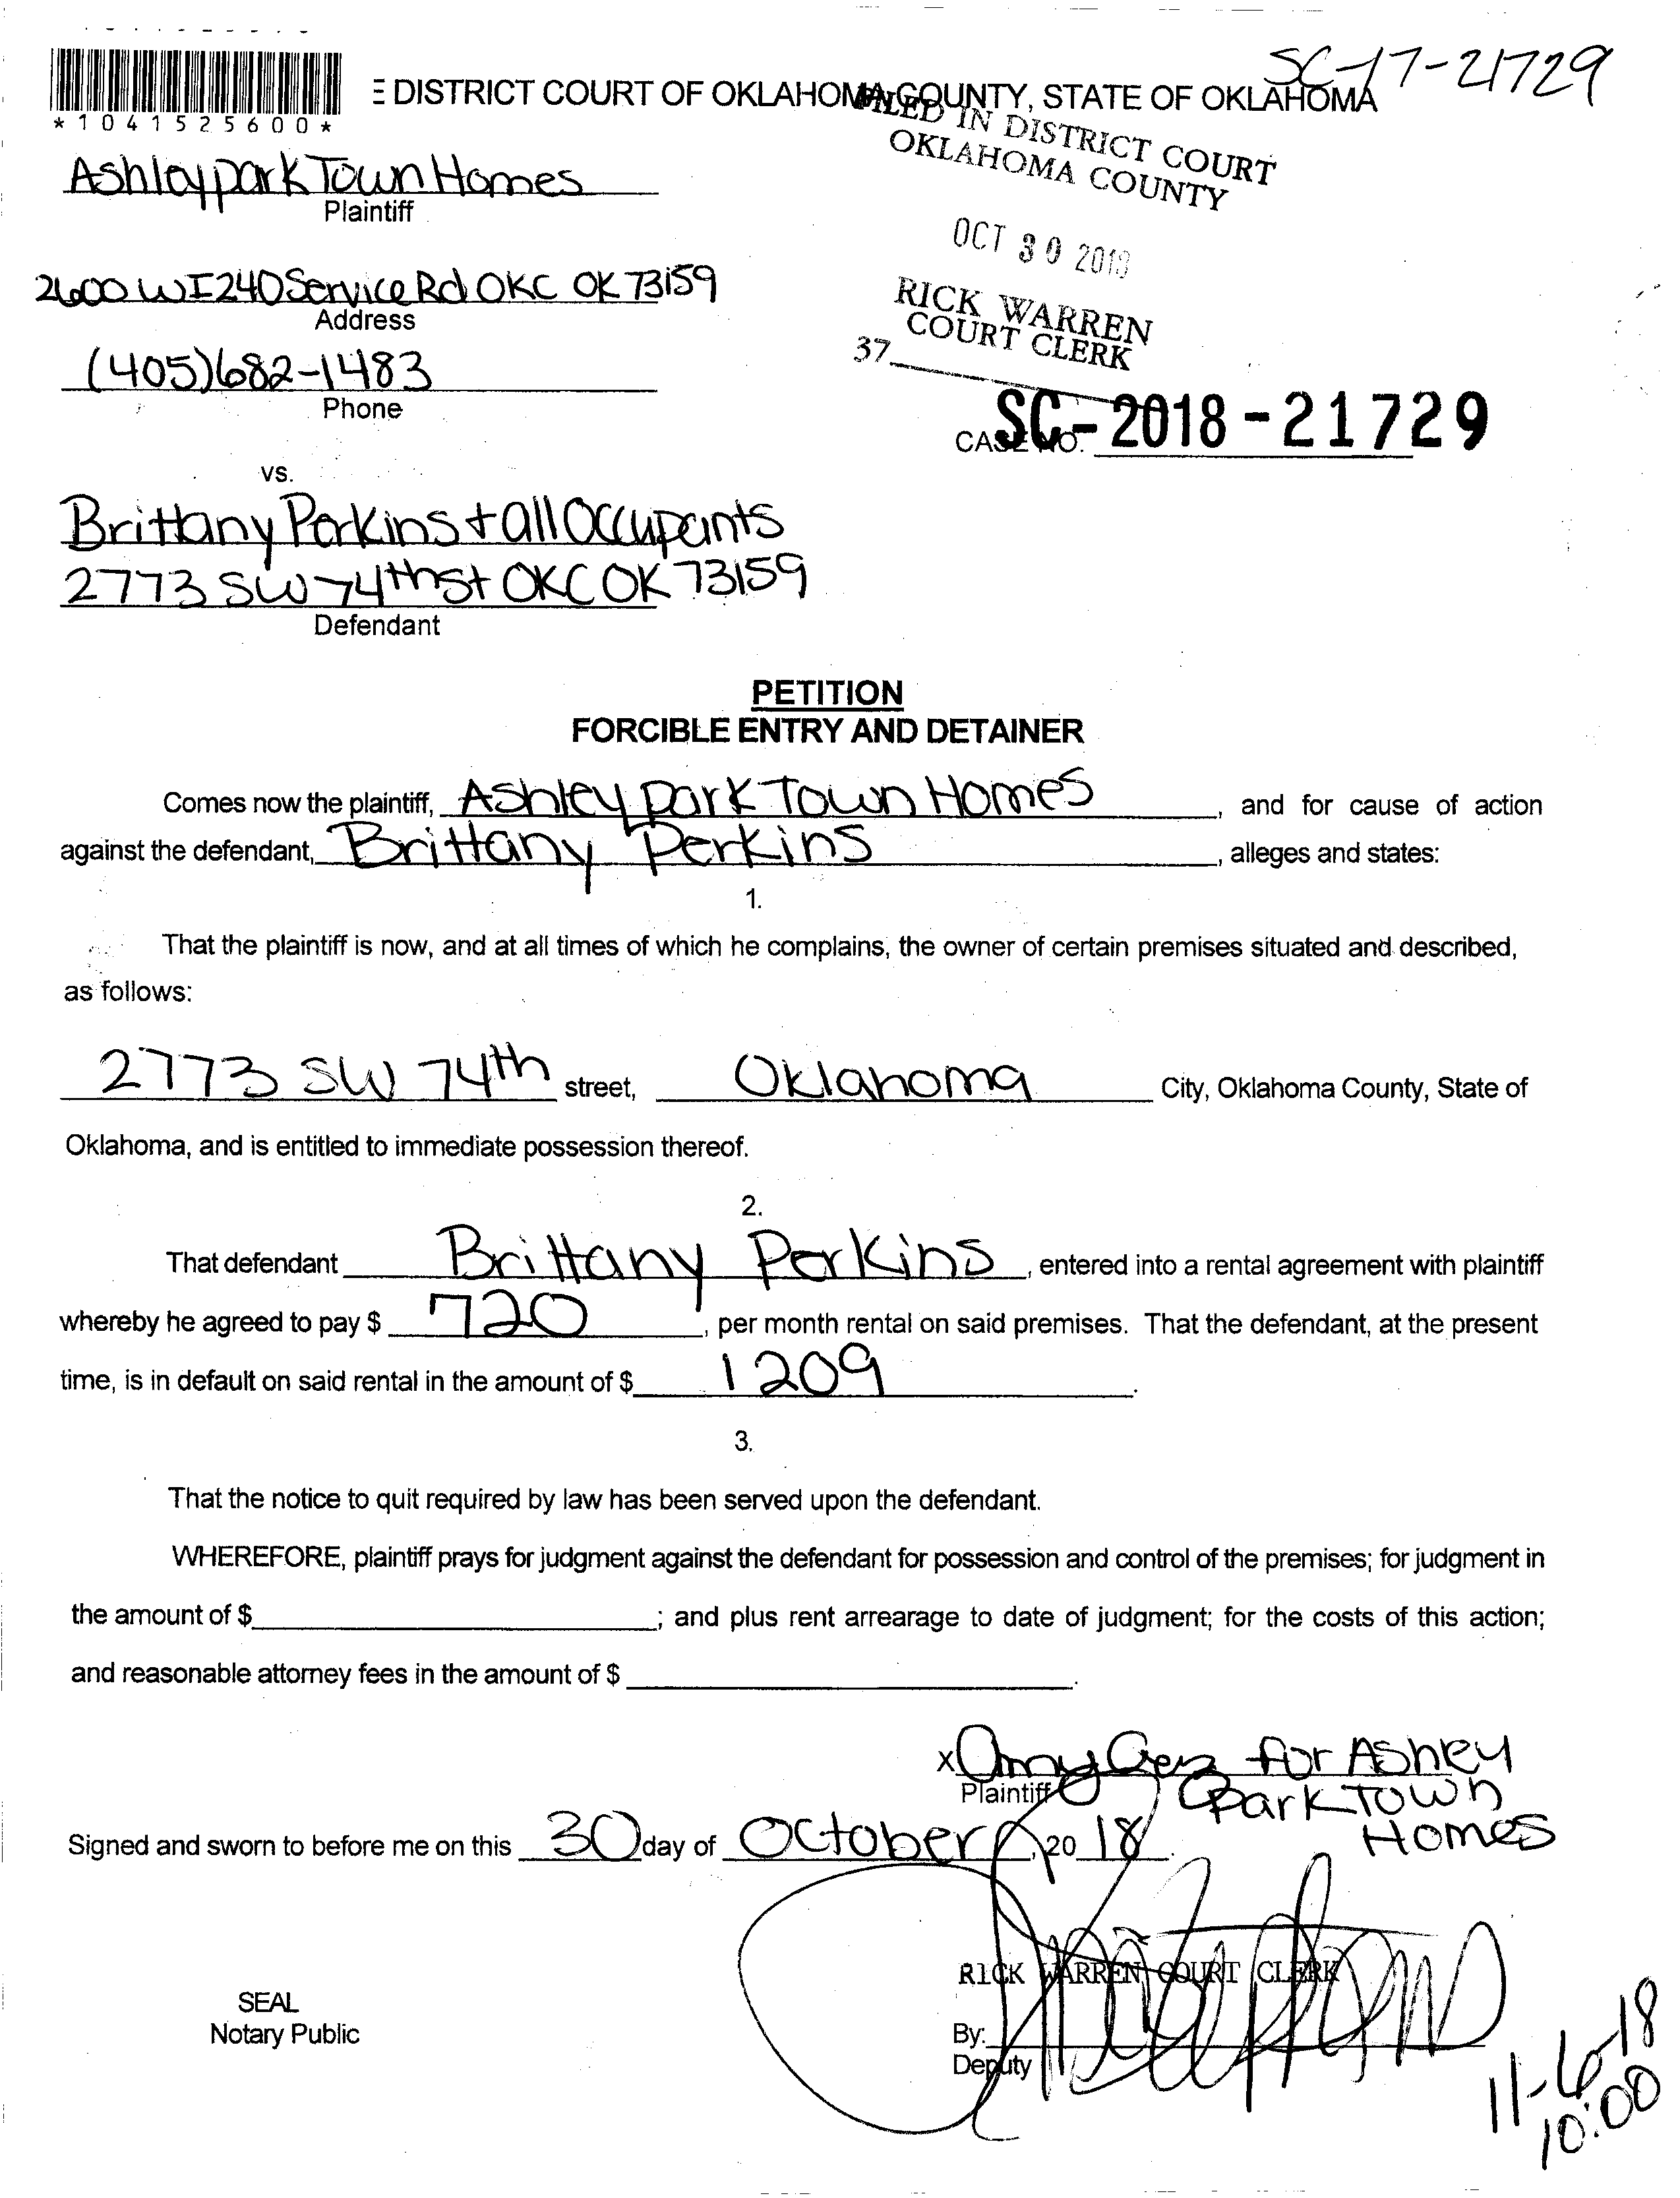 SC-17-21729
*1041525600*
E DISTRICT COURT OF OKLAHOMA COUNTY, STATE OF OKLAHOMA
FILED IN DISTRICT COURT
OKLAHOMA COUNTY
Ashley park Town Homes
Plaintiff
OCT 30 2018
2600 W I 240 Service Rd OKC OK 73159
Address
RICK WARREN
COURT CLERK
37
(405)682-1483
Phone
CASE NO. SC-2018-21729
vs.
Brittany Perkins + all Occupants
2773 SW 74th st OKC OK 73159
Defendant
PETITION
FORCIBLE ENTRY AND DETAINER
Comes now the plaintiff, Ashley park Town Homes, and for cause of action
against the defendant, Brittany Perkins, alleges and states:
1.
That the plaintiff is now, and at all times of which he complains, the owner of certain premises situated and described,
as follows:
2773 SW 74th street, Oklahoma City, Oklahoma County, State of
Oklahoma, and is entitled to immediate possession thereof.
2.
That defendant Brittany Perkins, entered into a rental agreement with plaintiff
whereby he agreed to pay $ 720, per month rental on said premises. That the defendant, at the present
time, is in default on said rental in the amount of $ 1209.
3.
That the notice to quit required by law has been served upon the defendant.
WHEREFORE, plaintiff prays for judgment against the defendant for possession and control of the premises; for judgment in
the amount of $ ; and plus rent arrearage to date of judgment; for the costs of this action;
and reasonable attorney fees in the amount of $ .
X Amy for Ashley
Plaintiff Park Town
Homes
Signed and sworn to before me on this 30 day of October, 20 18.
RICK WARREN COURT CLERK
SEAL
Notary Public
By:
Deputy
11-6-18
10:00